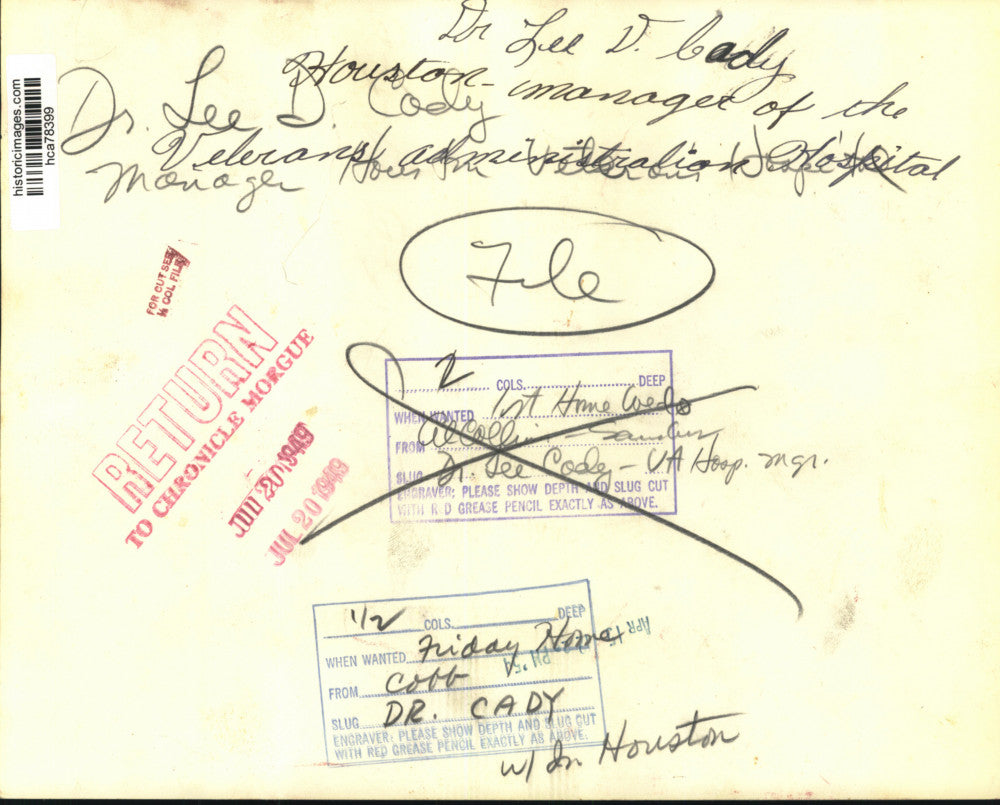 historicimages.com
hca78399
Dr Lee D. Cady
Houston - manager of the
Veterans administration Hospital
Dr. Lee D. Cody
Manager Houston Veterans Hospital
File
FOR CUT SEE
½ COL FILE
RETURN
TO CHRONICLE MORGUE
JUL 20 1949
JUL 20 1949
2 COLS. DEEP
WHEN WANTED 1st Home Weds
FROM Al Collins - Sanders
SLUG Dr. Lee Cody - VA Hosp. mgr.
ENGRAVER: PLEASE SHOW DEPTH AND SLUG CUT
WITH R D GREASE PENCIL EXACTLY AS ABOVE.
1/2 COLS. DEEP
WHEN WANTED Friday Home
APR 15
PM '54
FROM Cobb
SLUG DR. CADY
ENGRAVER: PLEASE SHOW DEPTH AND SLUG CUT
WITH RED GREASE PENCIL EXACTLY AS ABOVE.
w/ In Houston